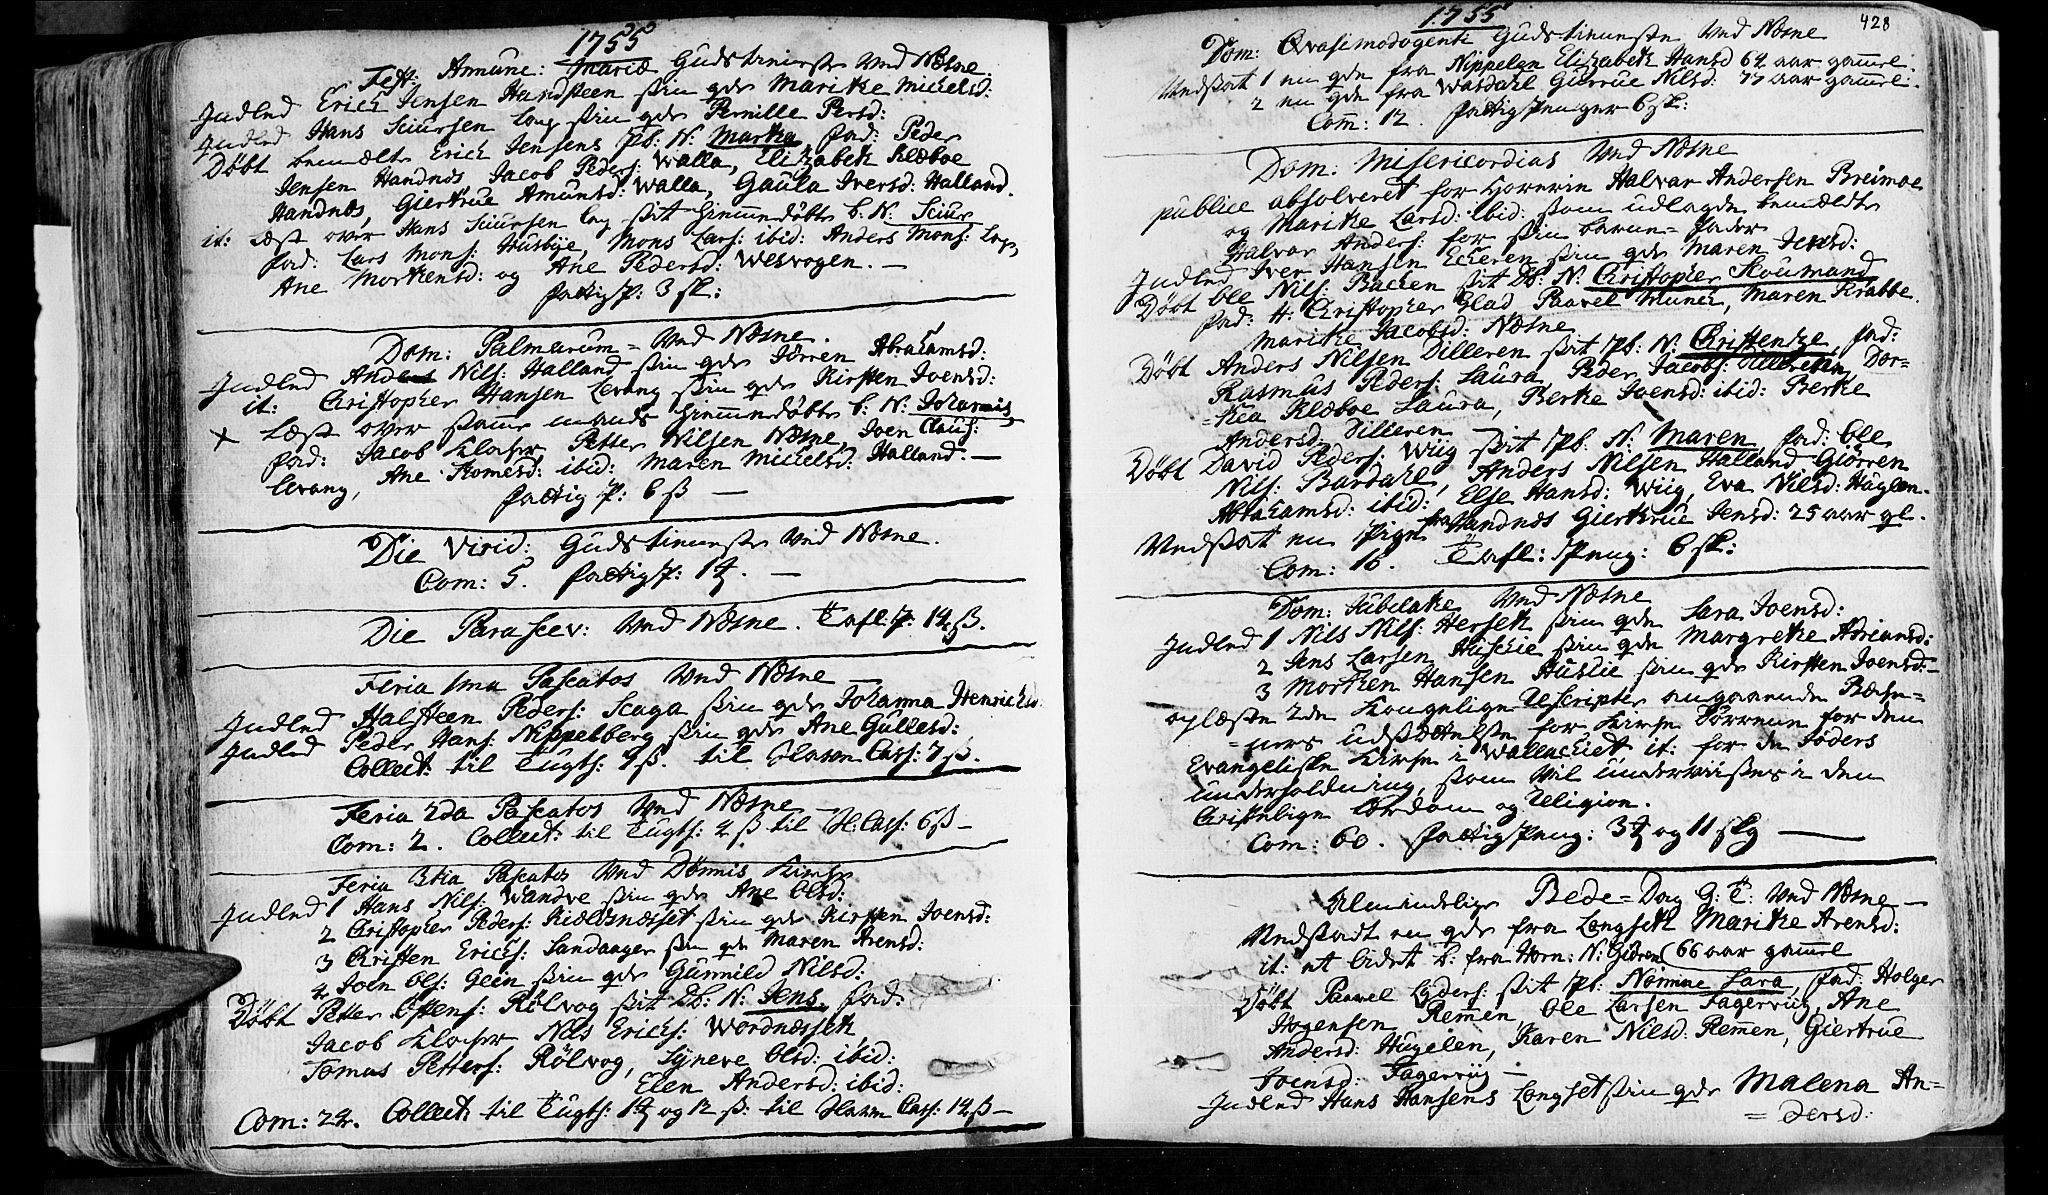 1755
Fest: Annunc: Mariæ Gudstienneste Ved Næsne.
Indled Erich Jensen Handsteen sin qde Marithe Michelsd:
Indled Hans Siursen Log sin qde Pernille Persd:
Døbt bemælte Erich Jensens Pb: N: Martha fad: Peder
Jensen Handnæs Jacob Peders: Walla, Elizabeth Klæboe
Handnæs, Giertrue Amunsd: Walla, Gaula Iversd: Halland.
it: læst over Hans Siursen Log sit hiemmedøbte b: N: Siur
fad: Lars Mons: Husbye, Mons Lars: ibid: Anders Mons: Log,
Ane Morthensd: og Ane Pedersd: Wesvogen. —
fattig p: 3 sk:
Dom: Palmarum = Ved Næsne.
Indled Anders Nils: Halland sin qde Jørren Abrahamsd:
it: Christopher Hansen Levang sin qde Kirsten Joensd:
x Læst over samme mands hiemmedøbte b: N: Johannis
fad: Jacob Klocher Petter Nilsen Næsne, Joen Claus:
Levang, Ane Tomesd: ibid: Maren Michelsd: Halland. —
fattig p: 6 ß —
Die Virid: Gudstienneste Ved Næsne.
Com: 5. fattig p: 14. —
Die Parascev: Ved Næsne. Tafl: p: 14 ß.
Feria 1ma Pascatos Ved Næsne —
Indled Halsteen Peders: Scaga sin qde Johanna Henrichsd:
Indled Peder Hans: Nippelberg sin qde Ane Gullesd:
Collect: til Tugts: 9 ß. til Havn Cass: 7 ß.
Feria 2da Pascatos Ved Næsne —
Com: 2. Collect: til Tugts: 4 ß til H: Cass: 6 ß —
Feria 3tia Pascatos Ved Dønnis Kirche
Indled 1 Hans Nils: Wandve sin qde Ane Olsd:
2 Christopher Peders: Kieldsnæsset sin qde Kirsten Joensd:
3 Christen Erichs: Sandaager sin qde Maren Arensd:
4 Joen Ols: Gein sin qde Gunnild Nilsd:
Døbt Petter Offens: Rølvog sit Db: N: Jens fad:
Jacob Klocher Nils Erichs: Wordnæsseth
Tomas Petters: Rølvog, Synneve Olsd: ibid:
Elen Andersd: ibid:
Com: 24. Collect: til Tugts: 14 og 12 ß: til Havn Cass: 14 ß —
1755
428
Dom: Qvasimodogenti Gudstienneste Ved Næsne
Vedstat 1 en qde fra Nippelen Elizabeth Hansd 64 aar gammel
2 en qde fra Wasdahl Giørrue Nilsd: 77 aar gammel:
Com: 12. fattig penger 6 sk:
Dom: Misericordias Ved Næsne
publice absolveret for Horerie Halvar Andersen Breimoe
og Marithe Larsd: ibid: som udlagde bemældte
Halvar Anders: for sin barne=fader
Indled Iver Hansen Echeren sin qde Maren Jensd:
Døbt Ole Nils: Bachen sit Db: N: Christopher Skousmand
fad: H: Christopher Glad Paavel Munch, Maren Krabbe
Marithe Jacobsd: Næsne
Døbt Anders Nilsen Dilleren sit Pb: N: Christentze, fad:
Rasmus Peders: Laura, Peder Jacobs: Dilleren, Dor=
=thea Klæboe Laura, Berthe Joensd: ibid: Berthe
Andersd: Dilleren
Døbt David Peders: Wiig sit Pb: N: Maren fad: Ole
Nils: Bardahl, Anders Nilsen Halland Giørren
Abrahamsd: ibid: Else Hansd: Wiig, Eva Nilsd: Huglen.
Vedstat en Pige fra Handnæs Gierthrue Jensd: 25 aar gl.
Com: 16. Tafl: Peng: 6 sk:
Dom: Jubilate Ved Næsne
Indled 1 Nils Nils: Herseth sin qde Sara Joensd:
2 Jens Larsen Huschie sin qde Margrethe Adriansd:
3 Morthen Hansen Huslie sin qde Kirsten Joensd: —
oplæste 2de Kongelige Rescripter angaaende
udsættelse for Kirche for den
Evangeliske Kirche i Wallachiet it: for de Jøders
underholdning, som vil underviises i den
Christelige Lærdom og Religion.
Com: 60. fattig Peng: 34 og 11 sk —
Almindelige Bede=Dag G: T: Ved Næsne —
Vedstadt en qde fra Longseth Marithe Arensd:
66 aar gammel
it: et lidet b: fra Horn: N: Gidren
Døbt Paavel Peders: sit Pb: Nomine Sara, fad: Holger
Hogensen Remen, Ole Larsen Fagerviig, Ane
Andersd: Hugelen, Karen Nilsd: Remen, Giertrue
Joensd: Fagerviig —
Indled Hans Hansens Longset sin qde Malena An=
=dersd: